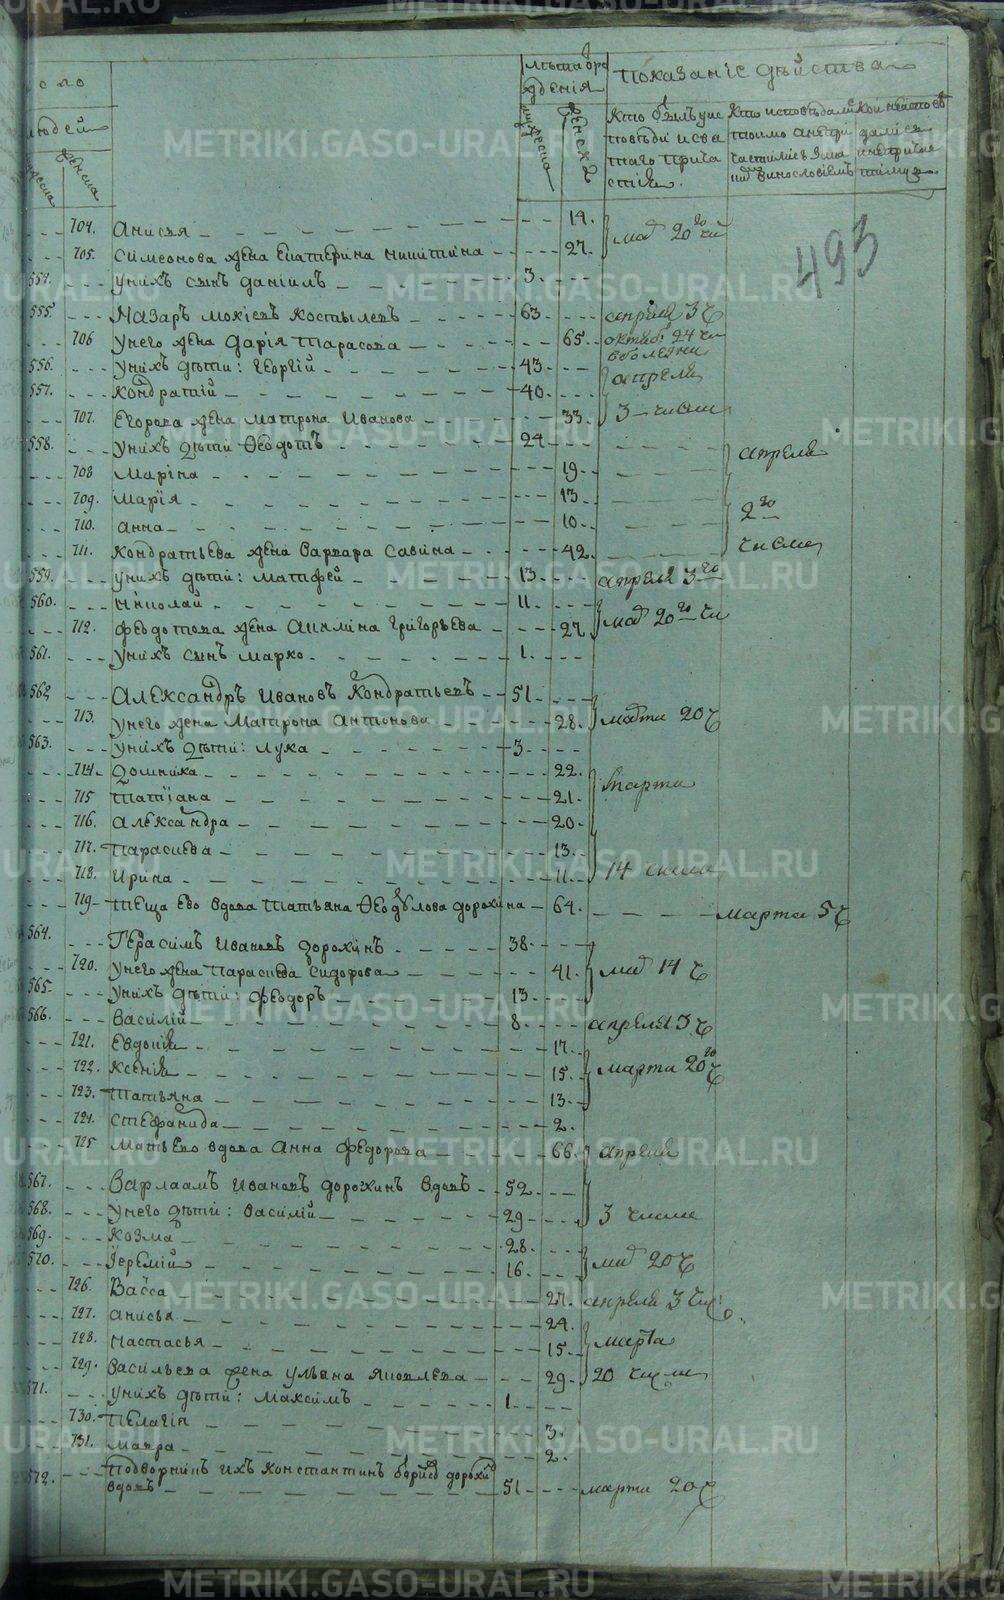 сло
людей
мужеска
женска
лѣта рож
денїя
мужеска
женска
Показанїе дѣйства
Кто былъ у ис
повѣди и свя
таго прича
стїя.
Кто исповѣдался
токмо а не при
частился и за
виннословїемъ
кои не испов
дались
и не причас
493
704. Анисья 19.
705. Симеонова жена Екатерина Никитина 27. мар 20го чи
554. У нихъ сынъ Данїилъ 3.
555. Назаръ Мокїевъ Костылевъ 63. апреля 3 ч
706 У него жена Дарїя Тарасова 65. октяб: 24 чи
в болезни
556. У нихъ дѣти: Георгїй 43. апреля
557. Кондратїй 40.
707. Егорова жена Матрона Иванова 33. 3 числа
558. У нихъ дѣти Ѳеодотъ 24
708 Марина 19 апреля
709. Марїя 13
710. Анна 10. 2го
711. Кондратьева жена Варвара Савина 42. числа
559. У нихъ дѣти: Матфей 13. апреля 3го
560. Николай 11.
712. Феодотова жена Акилина Григорьева 27 мар 20го чи
561. У нихъ сынъ Марко 1.
562 Александръ Ивановъ Кондратьевъ 51.
713. У него жена Матрона Антонова 28. марта 20 ч
563. У нихъ дѣти: Лука 3.
714. Домника 22.
715 Татїана 21. марта
716. Александра 20.
717. Парасиева 13.
718. Ирина 11. 14 числа
719 Теща ево вдова Татьяна Ѳеодулова Дорохина 64. марта 5 ч
564. Герасимъ Ивановъ Дорохинъ 38.
720. У него жена Парасиева Сидорова 41. мар 14 ч
565. У нихъ дѣти: Феодоръ 13.
566. Василїй 8. апреля 3 ч
721. Евдокїя 17.
722. Ксенїя 15. марта 20го ч
723. Татьяна 13.
724. Стефанида 2.
725 Мать ево вдова Анна Федорова 66. апреля
567. Варлаамъ Ивановъ Дорохинъ вдовъ 52
568. У него дѣти: Василїй 29 3 числа
569. Козма 28.
570. Їеремїй 16. мар 20 ч
726. Васса 27. апреля 3 чис:
727. Анисья 24.
728. Настасья 15. марта
729. Васильева жена Ульяна Яковлева 29. 20 числа
571. У нихъ дѣти: Максимъ 1.
730. Пелагїя 3.
731. Мавра 2.
572. Подворникъ ихъ Константинъ Борисовъ Дорохинъ
вдовъ 51 марта 20 ч
METRIKI.GASO-URAL.RU